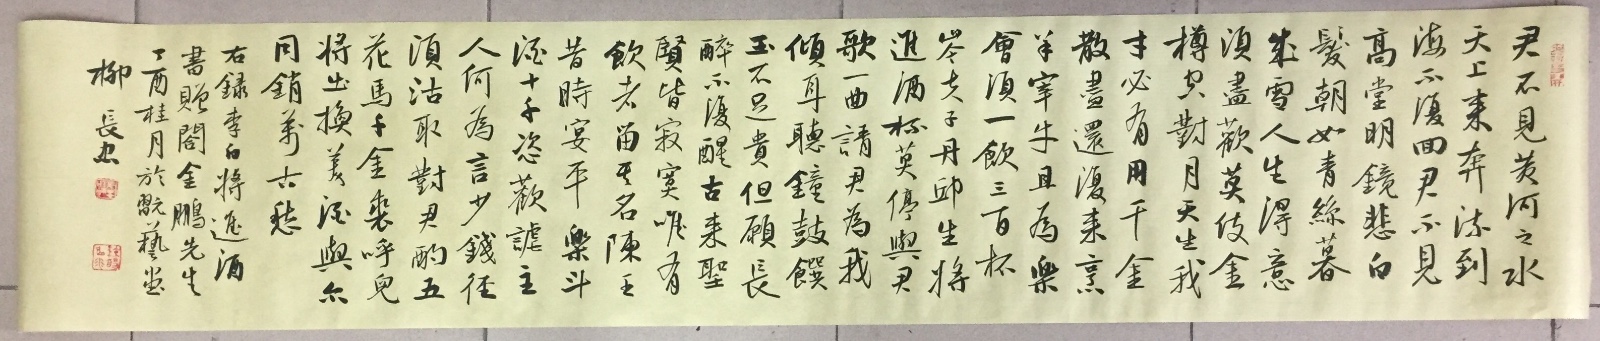 君不見黃河之水
天上來奔流到
海不復回君不見
高堂明鏡悲白
髮朝如青絲暮
成雪人生得意
須盡歡莫使金
樽空對月天生我
才必有用千金
散盡還復來烹
羊宰牛且為樂
會須一飲三百杯
岑夫子丹邱生將
進酒杯莫停與君
歌一曲請君為我
傾耳聽鐘鼓饌
玉不足貴但願長
醉不復醒古來聖
賢皆寂寞唯有
飲者留其名陳王
昔時宴平樂斗
酒十千恣歡謔主
人何為言少錢徑
須沽取對君酌五
花馬千金裘呼兒
將出換美酒與尒
同銷萬古愁
右錄李白將進酒
書贈閻金鵬先生
丁酉桂月於翫藝堂
柳長忠